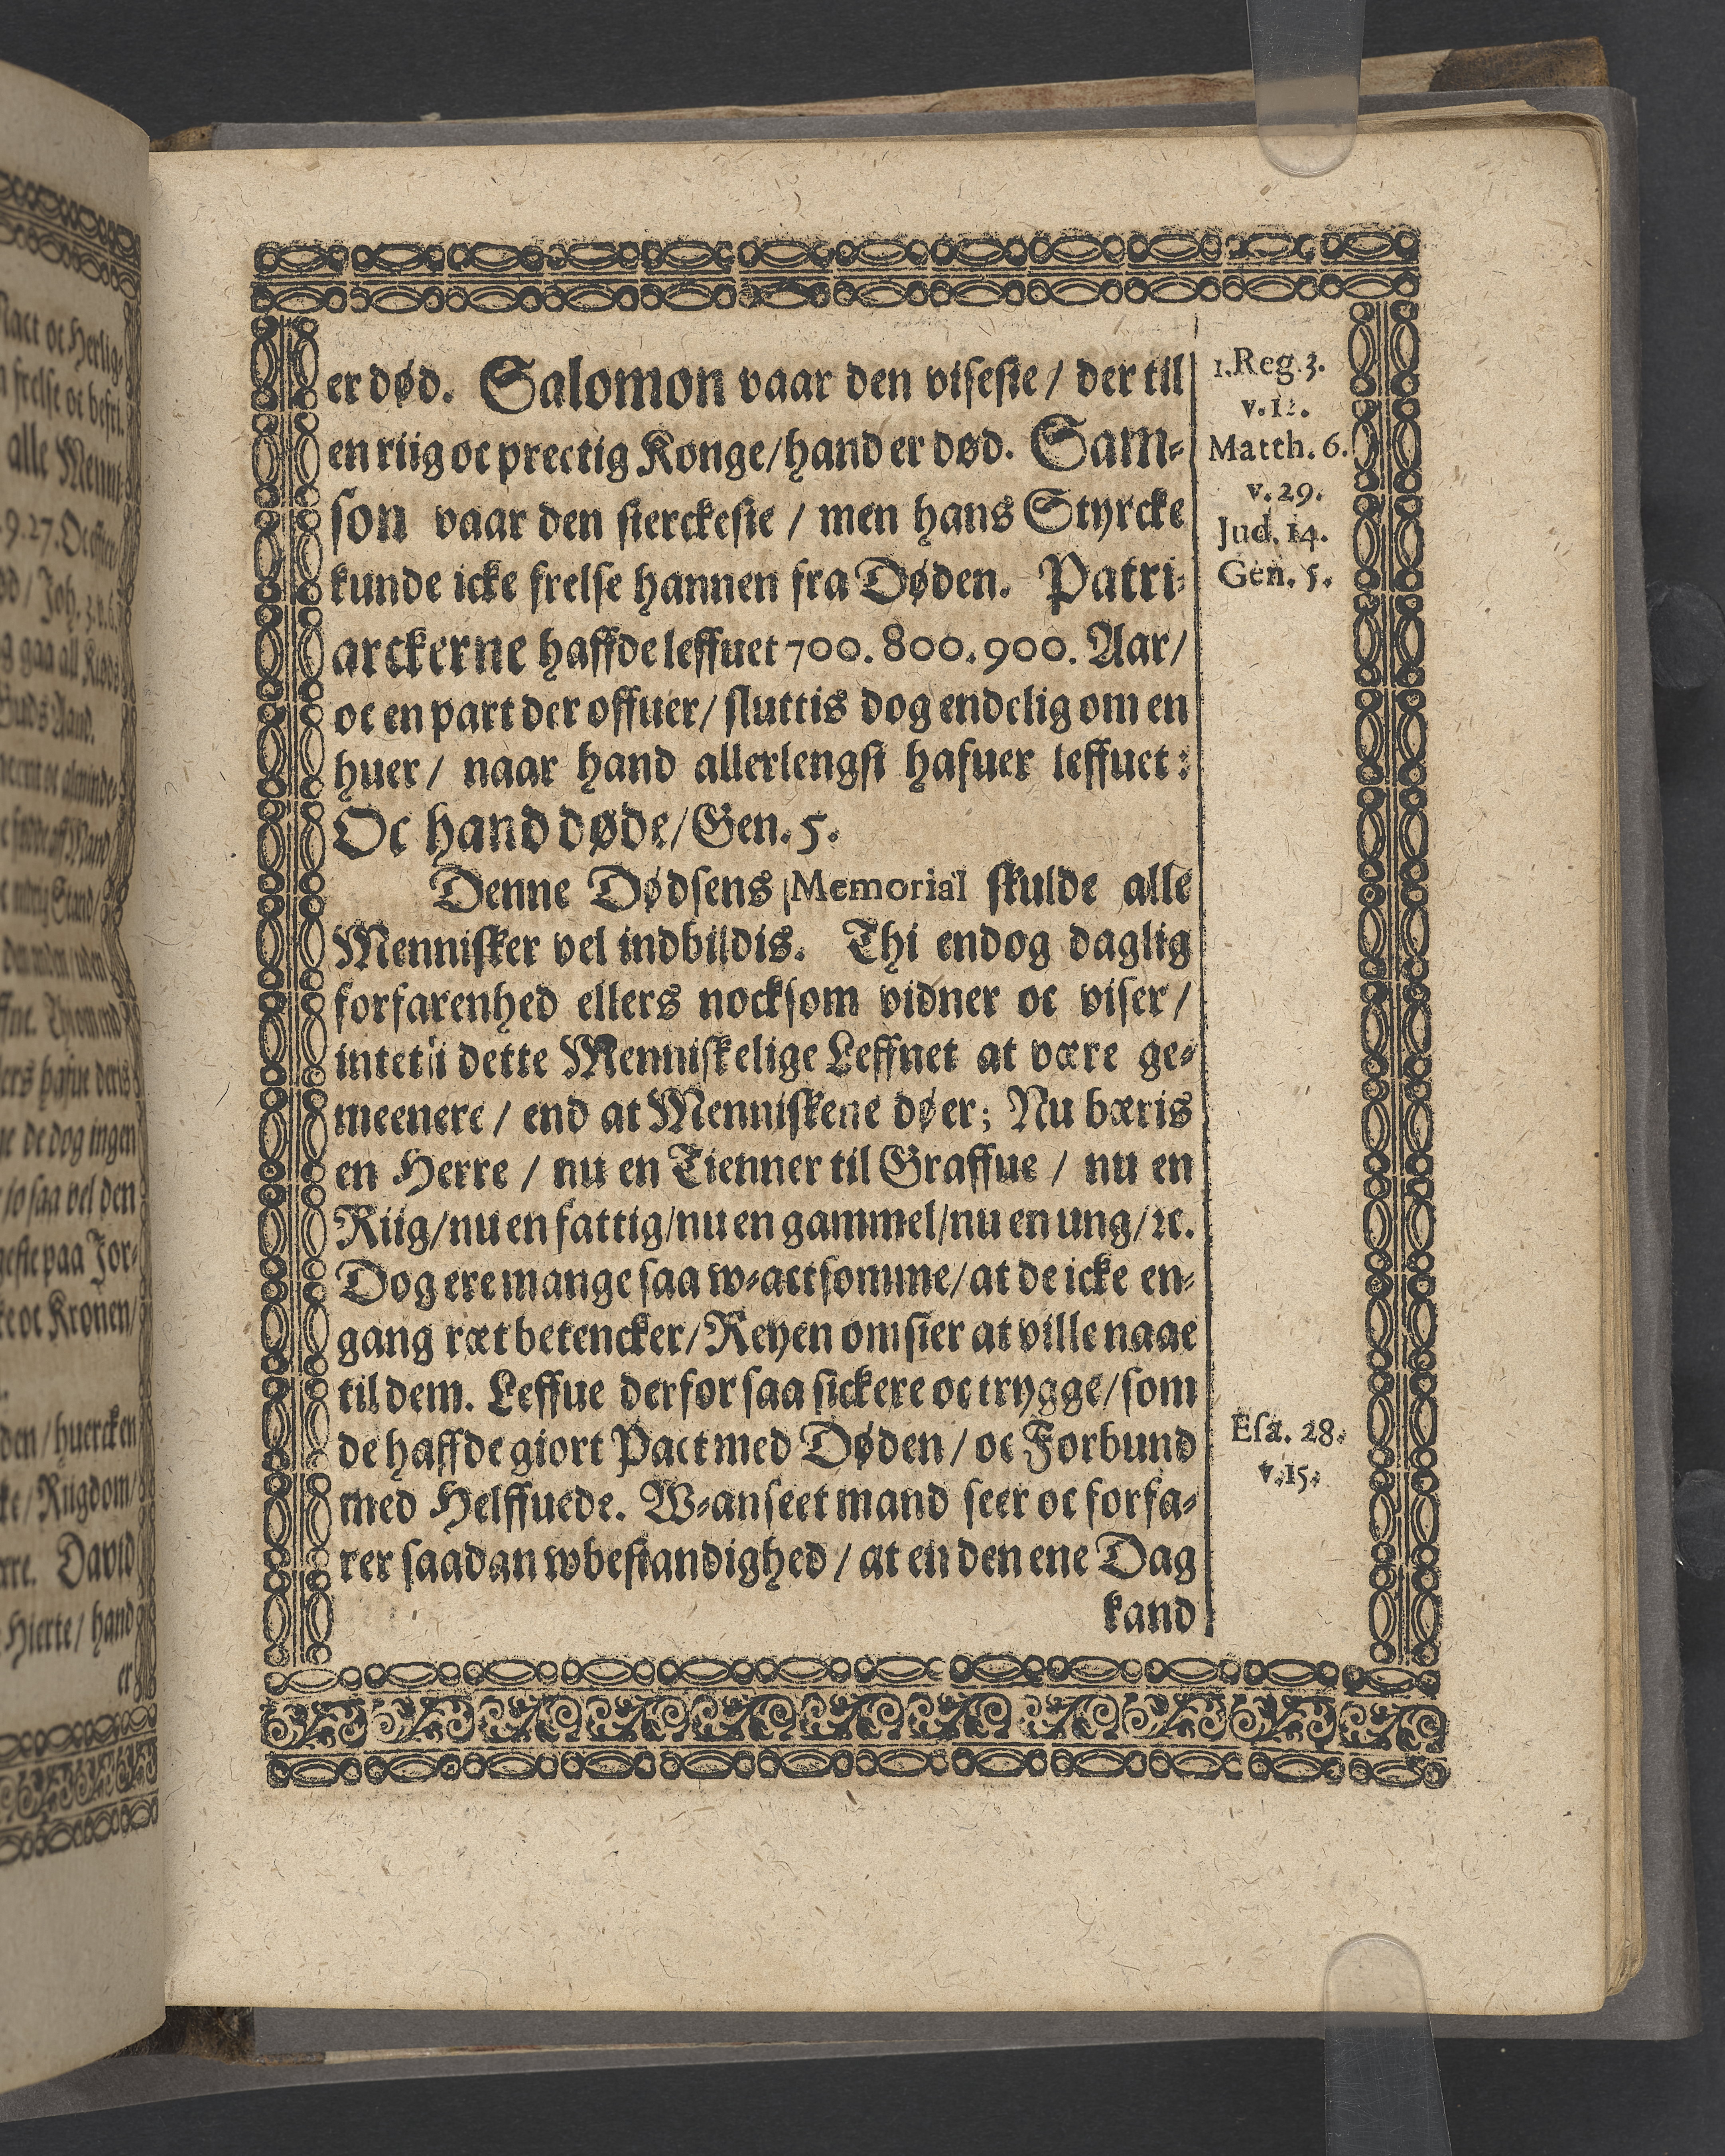 er død. Salomon vaar den viseste / der til
en riig oc prectig Konge / hand er død. Sam-
son vaar den sterckeste / men hans Styrcke
kunde icke frelse hannen fra Døden. Patri-
arckerne haffde leffuet 700. 800. 900. Aar /
oc en part der offuer / sluttis dog endelig om en
huer / naar hand allerlengst hafuer leffuet:
Oc hand døde / Gen. 5.
Denne Dødsens Memorial skulde alle
Mennisker vel indbildis. Thi endog daglig
forfarenhed ellers nocksom vidner oc viser /
intet i dette Menniskelige Leffnet at være ge-
meenere / end at Menniskene døer; Nu bæris
en Herre / nu en Tienner til Graffue / nu en
Riig / nu en fattig / nu en gammel / nu en ung / ꝛc.
Dog ere mange saa w-actsomme / at de icke en-
gang ræt betencker / Reyen omsier at ville naae
til dem. Leffue derfor saa sickere oc trygge / som
de haffde giort Pact med Døden / oc Forbund
med Helffuede. W-anseet mand seer oc forfa-
rer saadan wbestandighed / at en den ene Dag
kand
1. Reg. 3.
v. 12.
Matth. 6.
v. 29.
Jud. 14.
Gen. 5.
Esa. 28.
v. 15.
Mact oc Herlig-
frelse oc befri.
alle Menni-
9. 27. Oc efter
gaa all Kiøds
Guds Aand.
de dog ingen
so saa vel den
paa Jor-
oc Kronen /
huercken
Riigdom /
David
Hierte / hand
er